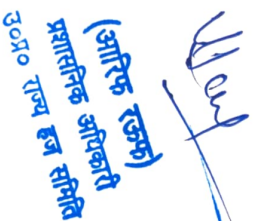 (आरिफ रऊफ)
प्रशासनिक अधिकारी
उ०प्र० राज्य हज समिति